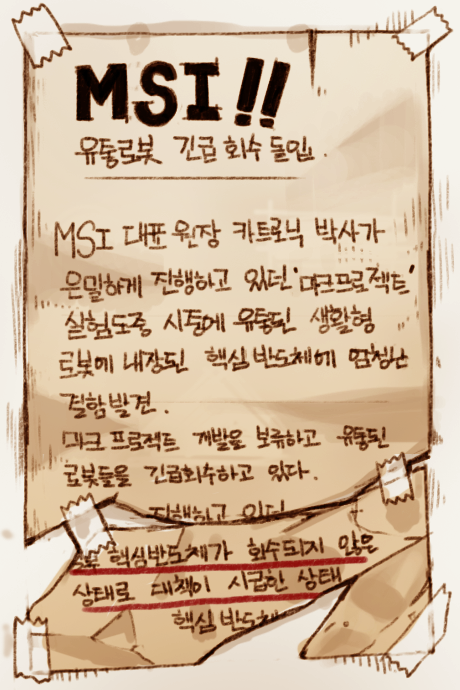 MSI!!
유통로봇 긴급 회수 돌입.
MSI 대표 원장 카트로닉 박사가
은밀하게 진행하고 있던 '마크프로젝트'
실험도중 시중에 유통된 생활형
로봇에 내장된 핵심 반도체에 엄청난
결함 발견.
마크 프로젝트 개발을 보류하고 유통된
로봇들을 긴급회수하고 있다.
진행하고 있던
핵심반도체가 회수되지 않은
상태로 대책이 시급한 상태
핵심 반도체